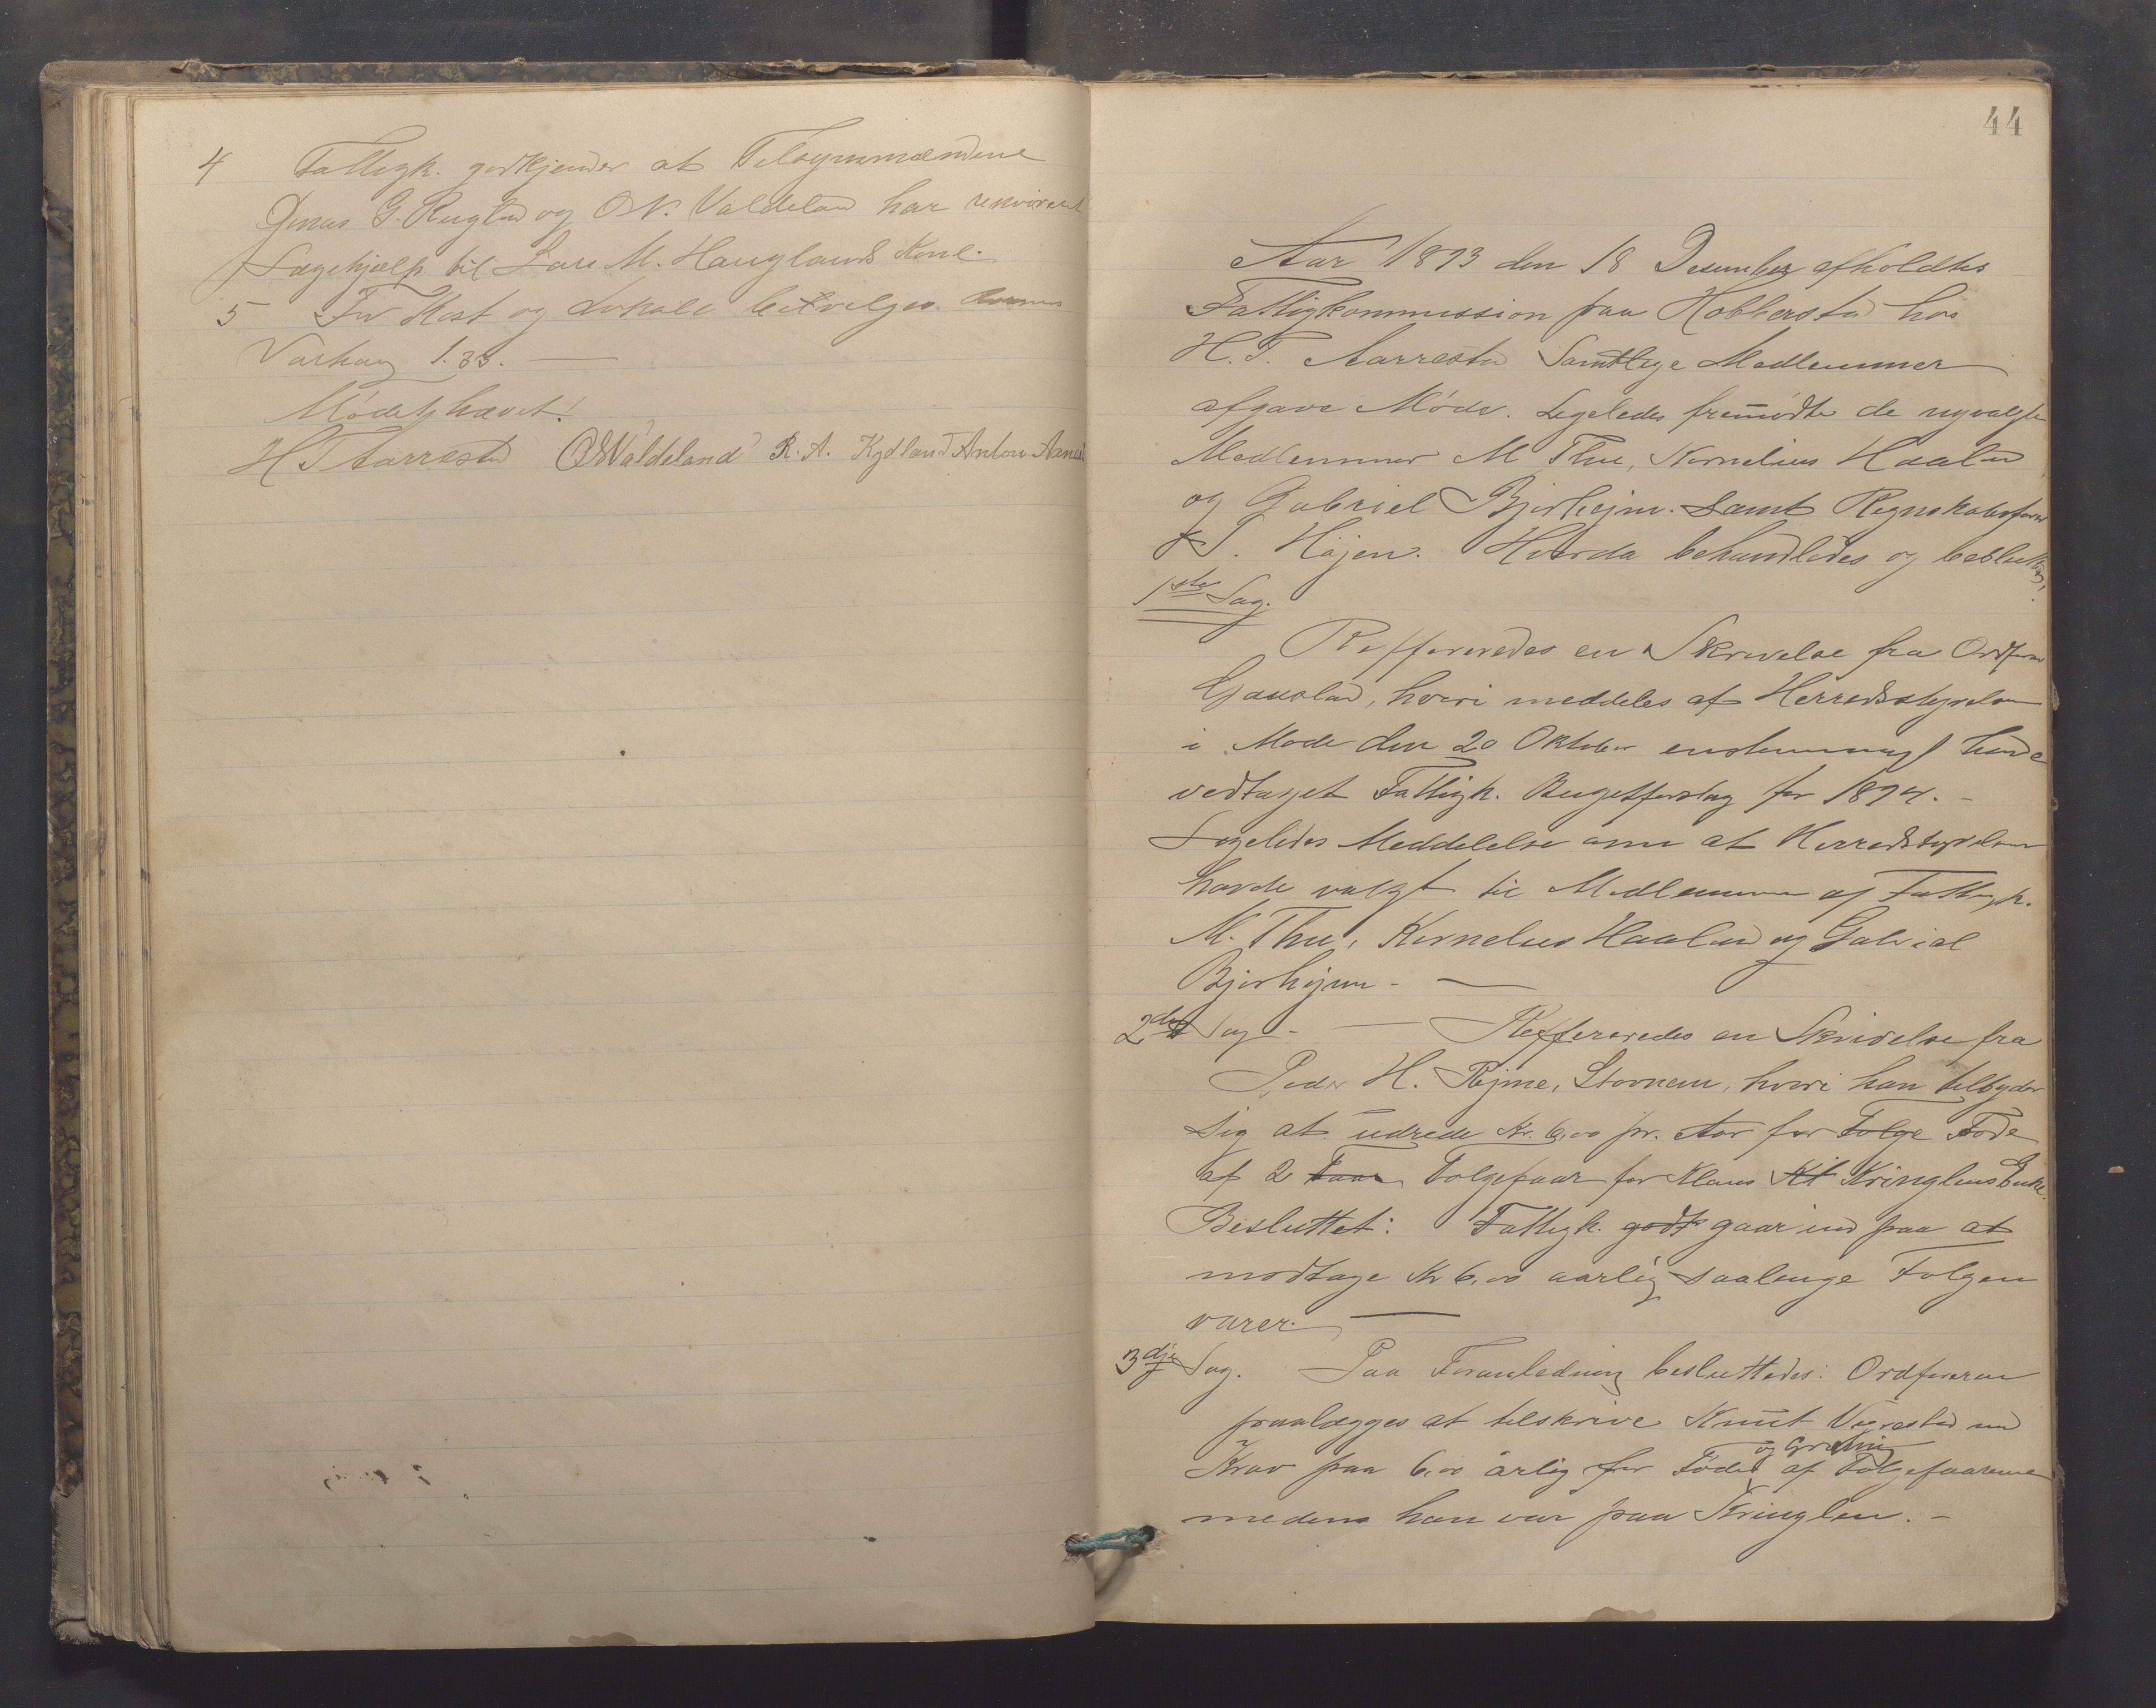 4 Fattigk. godkjender at Tilsynsmændene
Jonas G. Ruglan og O N. Valdeland har rekvireret
Lægehjælp til Lars M. Hauglands Kone.
5 For Kost og Lokale bevilges
Varhaug 1.33. —
Mødet hævet!
H T Aarrestad O N Valdeland R. A. Kydland Anton Aanes
44
Aar 1893 den 18 Desember afholdtes
Fattigkommission paa Hobberstad hos
H. T. Aarrestad Samtlige Medlemmer
afgave Møde. Ligeledes fremmødte de nyvalgte
Medlemmer M Thu, Kornelius Haaland
og Gabriel Bjorhejm. Samt Regnskabsfører
T. Højen. Hvorda behandledes og besluttedes.
1ste Sag.
Reffereredes en Skrivelse fra Ordfører
Gjauslan, hvori meddeles af Herredsstyrelsen
i Møde den 20 Oktober enstemmigt havde
vedtaget Fattigk. Bugetforslag for 1894. -
Ligeledes Meddelelse om at Herredstyrelsen
havde valgt til Medlemmer af Fattigk.
M. Thu, Kornelius Haaland og Gabriel
Bjorhejm - —
2den Sag - — Reffereredes en Skrivelse fra
Peder H. Rejme, Stovnem, hvori han tilbyder
sig at udrede Kr. 6,00 pr. Aar for Følge Føde
af 2 Faar Følgefaar for Klaus Kl Kringlens Enke.
Besluttet: Fattigk. godk gaar ind paa at
modtage Kr 6,00 aarlig saalænge Følgen
varer. —
3dje Sag. Paa Foranledning besluttedes: Ordføreren
paalægges at tilskrive Knut Vigrestad med
Krav paa 6,00 årlig for Føde og Græsning af Følgefaarene
medens han var paa Kringlen. -